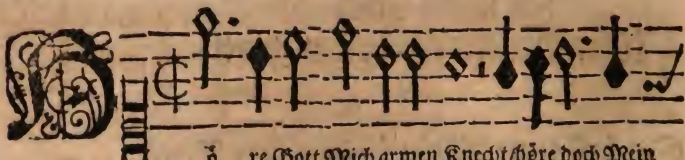 Hö re Gott Mich armen Knecht/ höre doch Mein